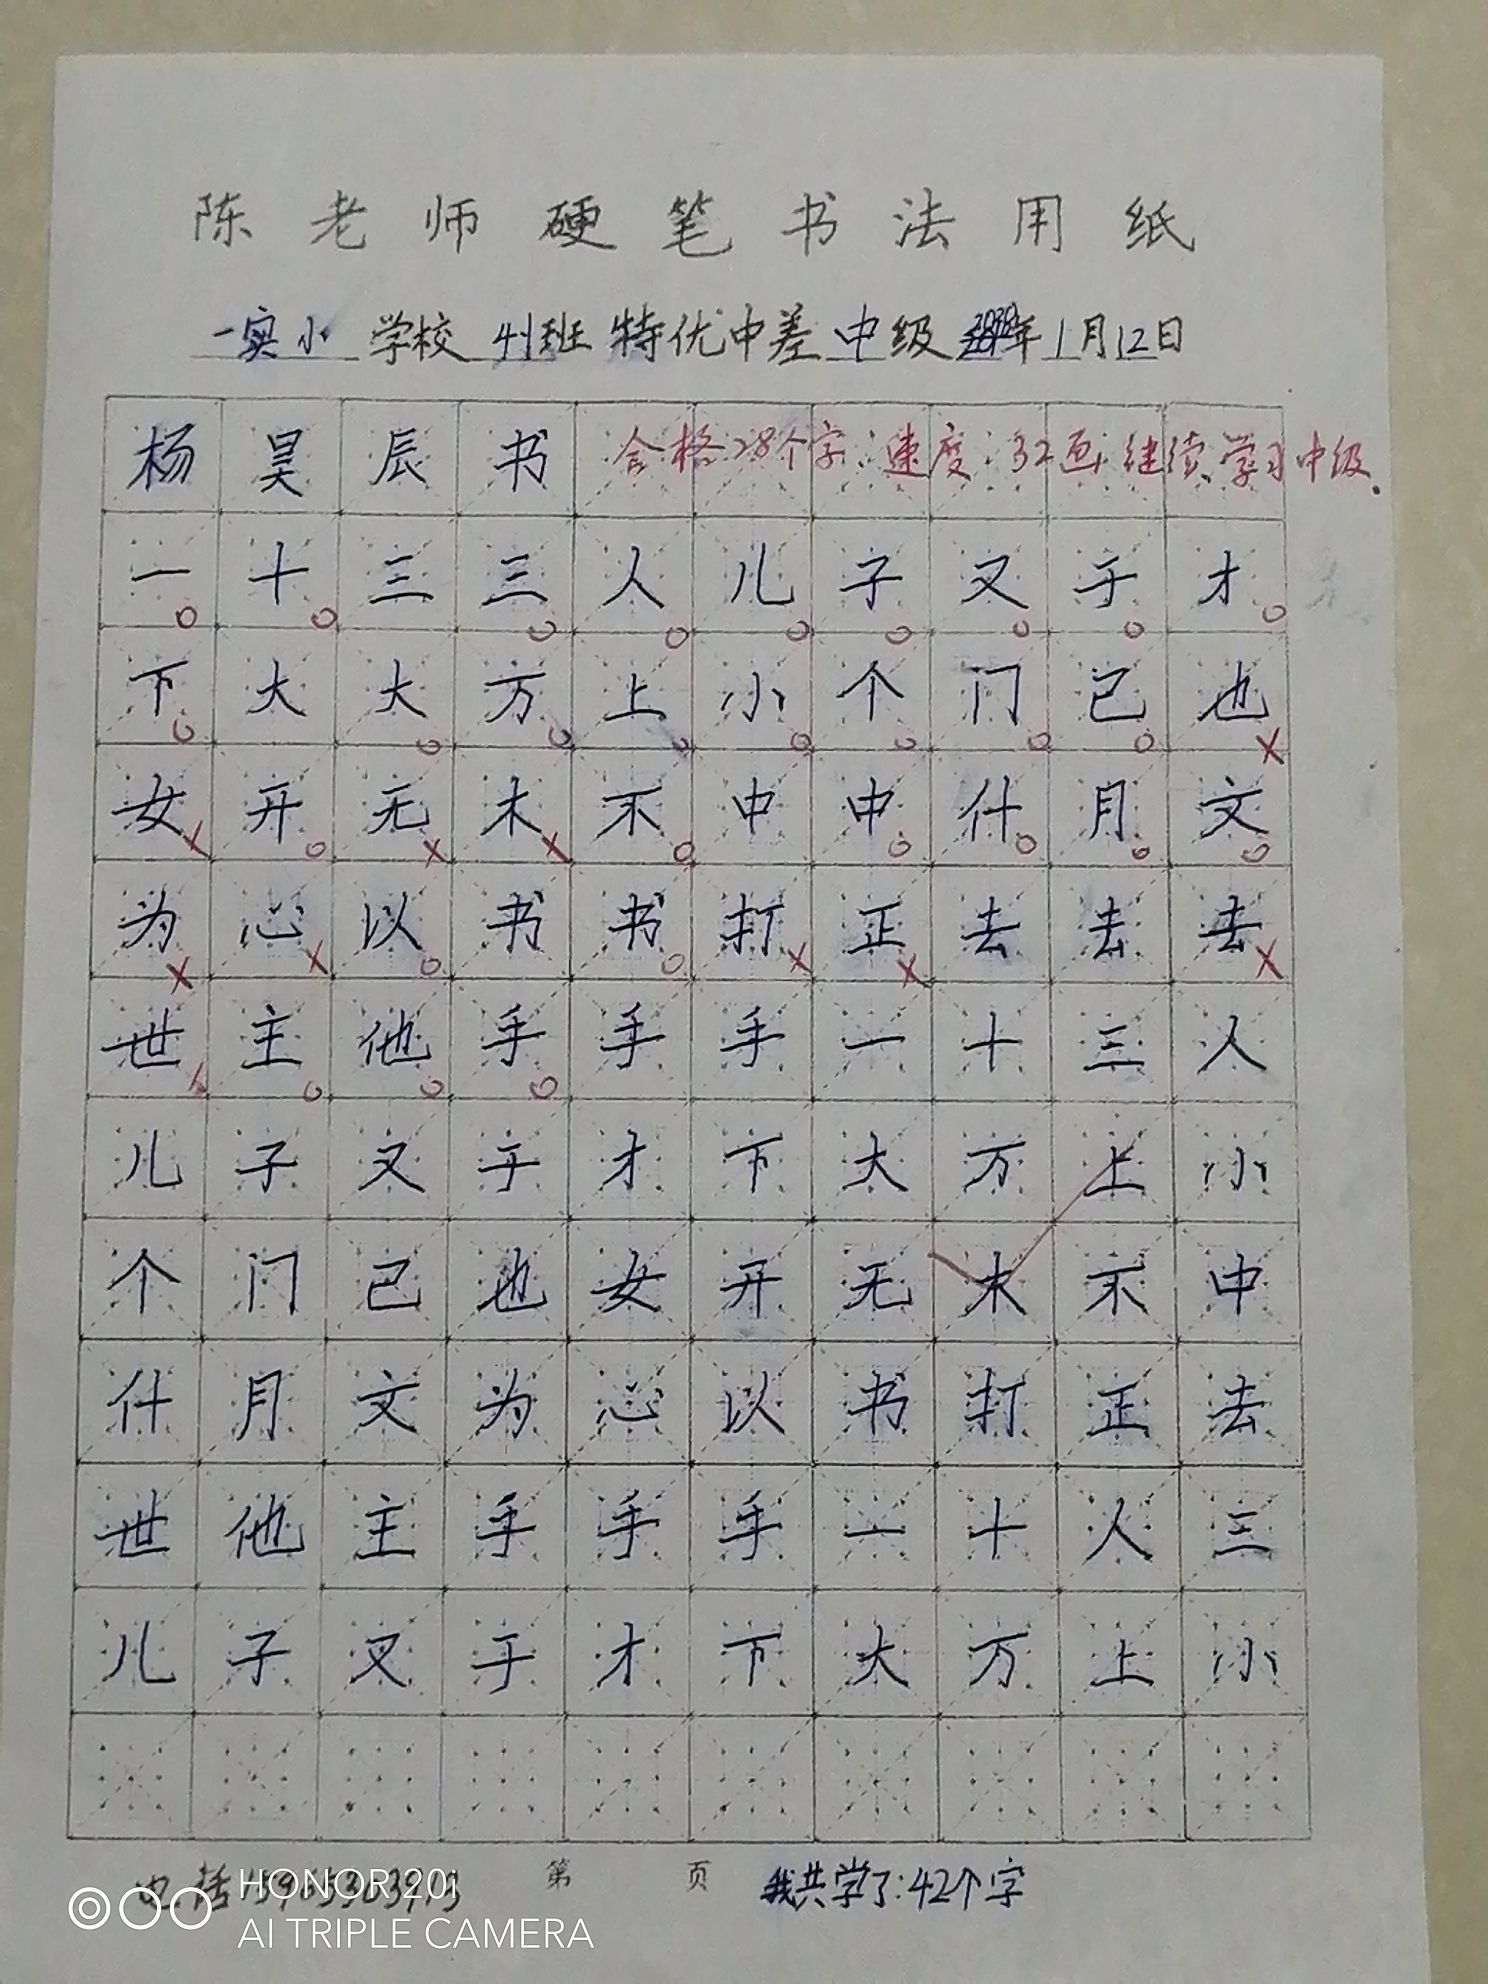 陈老师硬笔书法用纸
一实小 学校 41班 特优中差 中级 年 1月12日
杨昊辰书 合格28个字.速度:32画,继续学习中级.
一十三三人儿子又于才
下大大万上小个门己也
女开无木不中中什月文
为心以书书打正去去去
世主他手手手一十三人
儿子又于才下大万上小
个门己也女开无木不中
什月文为心以书打正去
世他主手手手一十人三
儿子又于才下大万上小
电话 第 页 我共学了:42个字
HONOR 20i
AI TRIPLE CAMERA